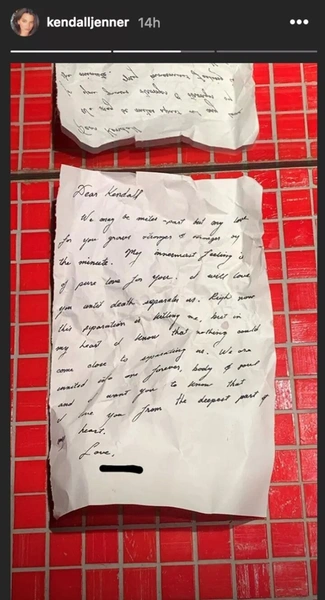 kendalljenner 14h
Dear Kendall
We may be miles apart but my love
for you grows stronger & stronger by
the minute. My innermost feeling is
of pure love for you. I will love
you until death separate us. Right now
this separation is killing me, but in
my heart I know that nothing could
come close to separating us. We are
united into one forever, body of soul
and I want you to know that
I love you from the deepest part of
my heart.
Love,